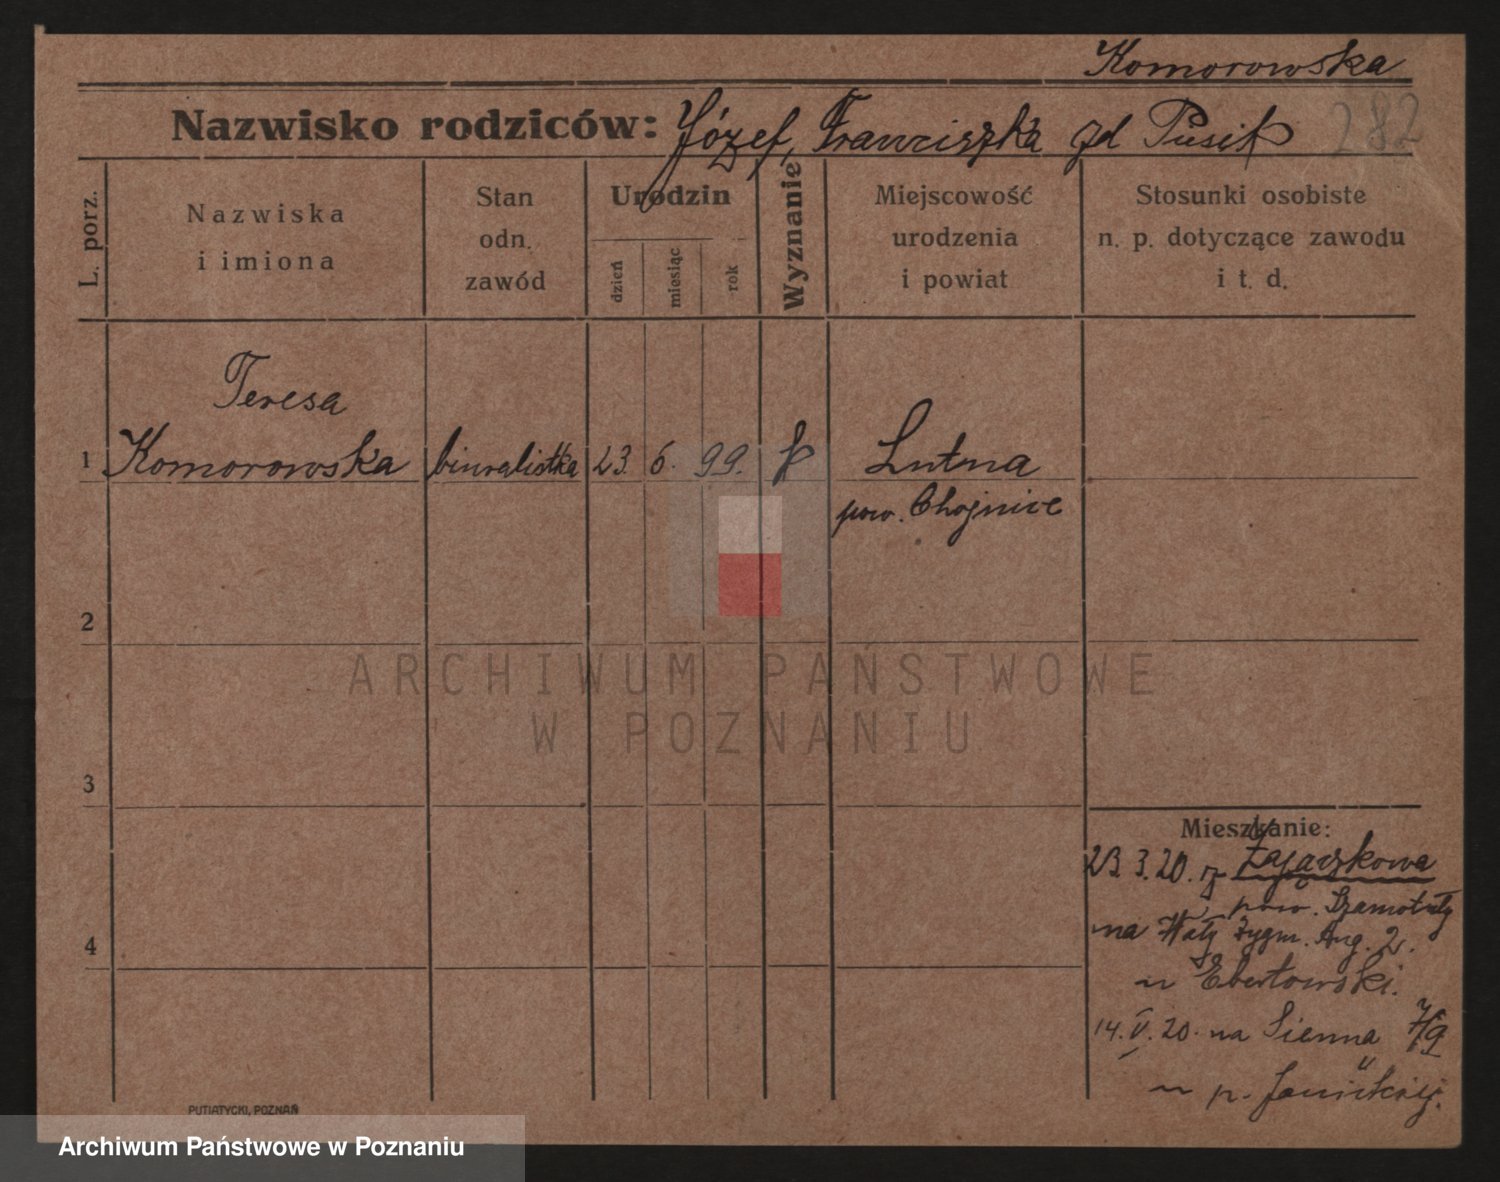 Komorowska
Nazwisko rodziców: Józef, Franciszka zd Pusik
282
L. porz.
Nazwiska
i imiona
Stan
odn.
zawód
Urodzin
dzień
miesiąc
rok
Wyznanie
Miejscowość
urodzenia
i powiat
Stosunki osobiste
n. p. dotyczące zawodu
i t. d.
Teresa
1 Komorowska biuralistka 23. 6. 99. k Lutna
pow. Chojnice
2
3
4
ARCHIWUM PAŃSTWOWE
W POZNANIU
Mieszkanie:
23.3.20. z Zajączkowa
pow. Szamotuły
na Wały Zygm. Aug. 2.
u Ebertowski.
14.V.20. na Sienna 7/9
u p.
PUTIATYCKI, POZNAŃ
Archiwum Państwowe w Poznaniu